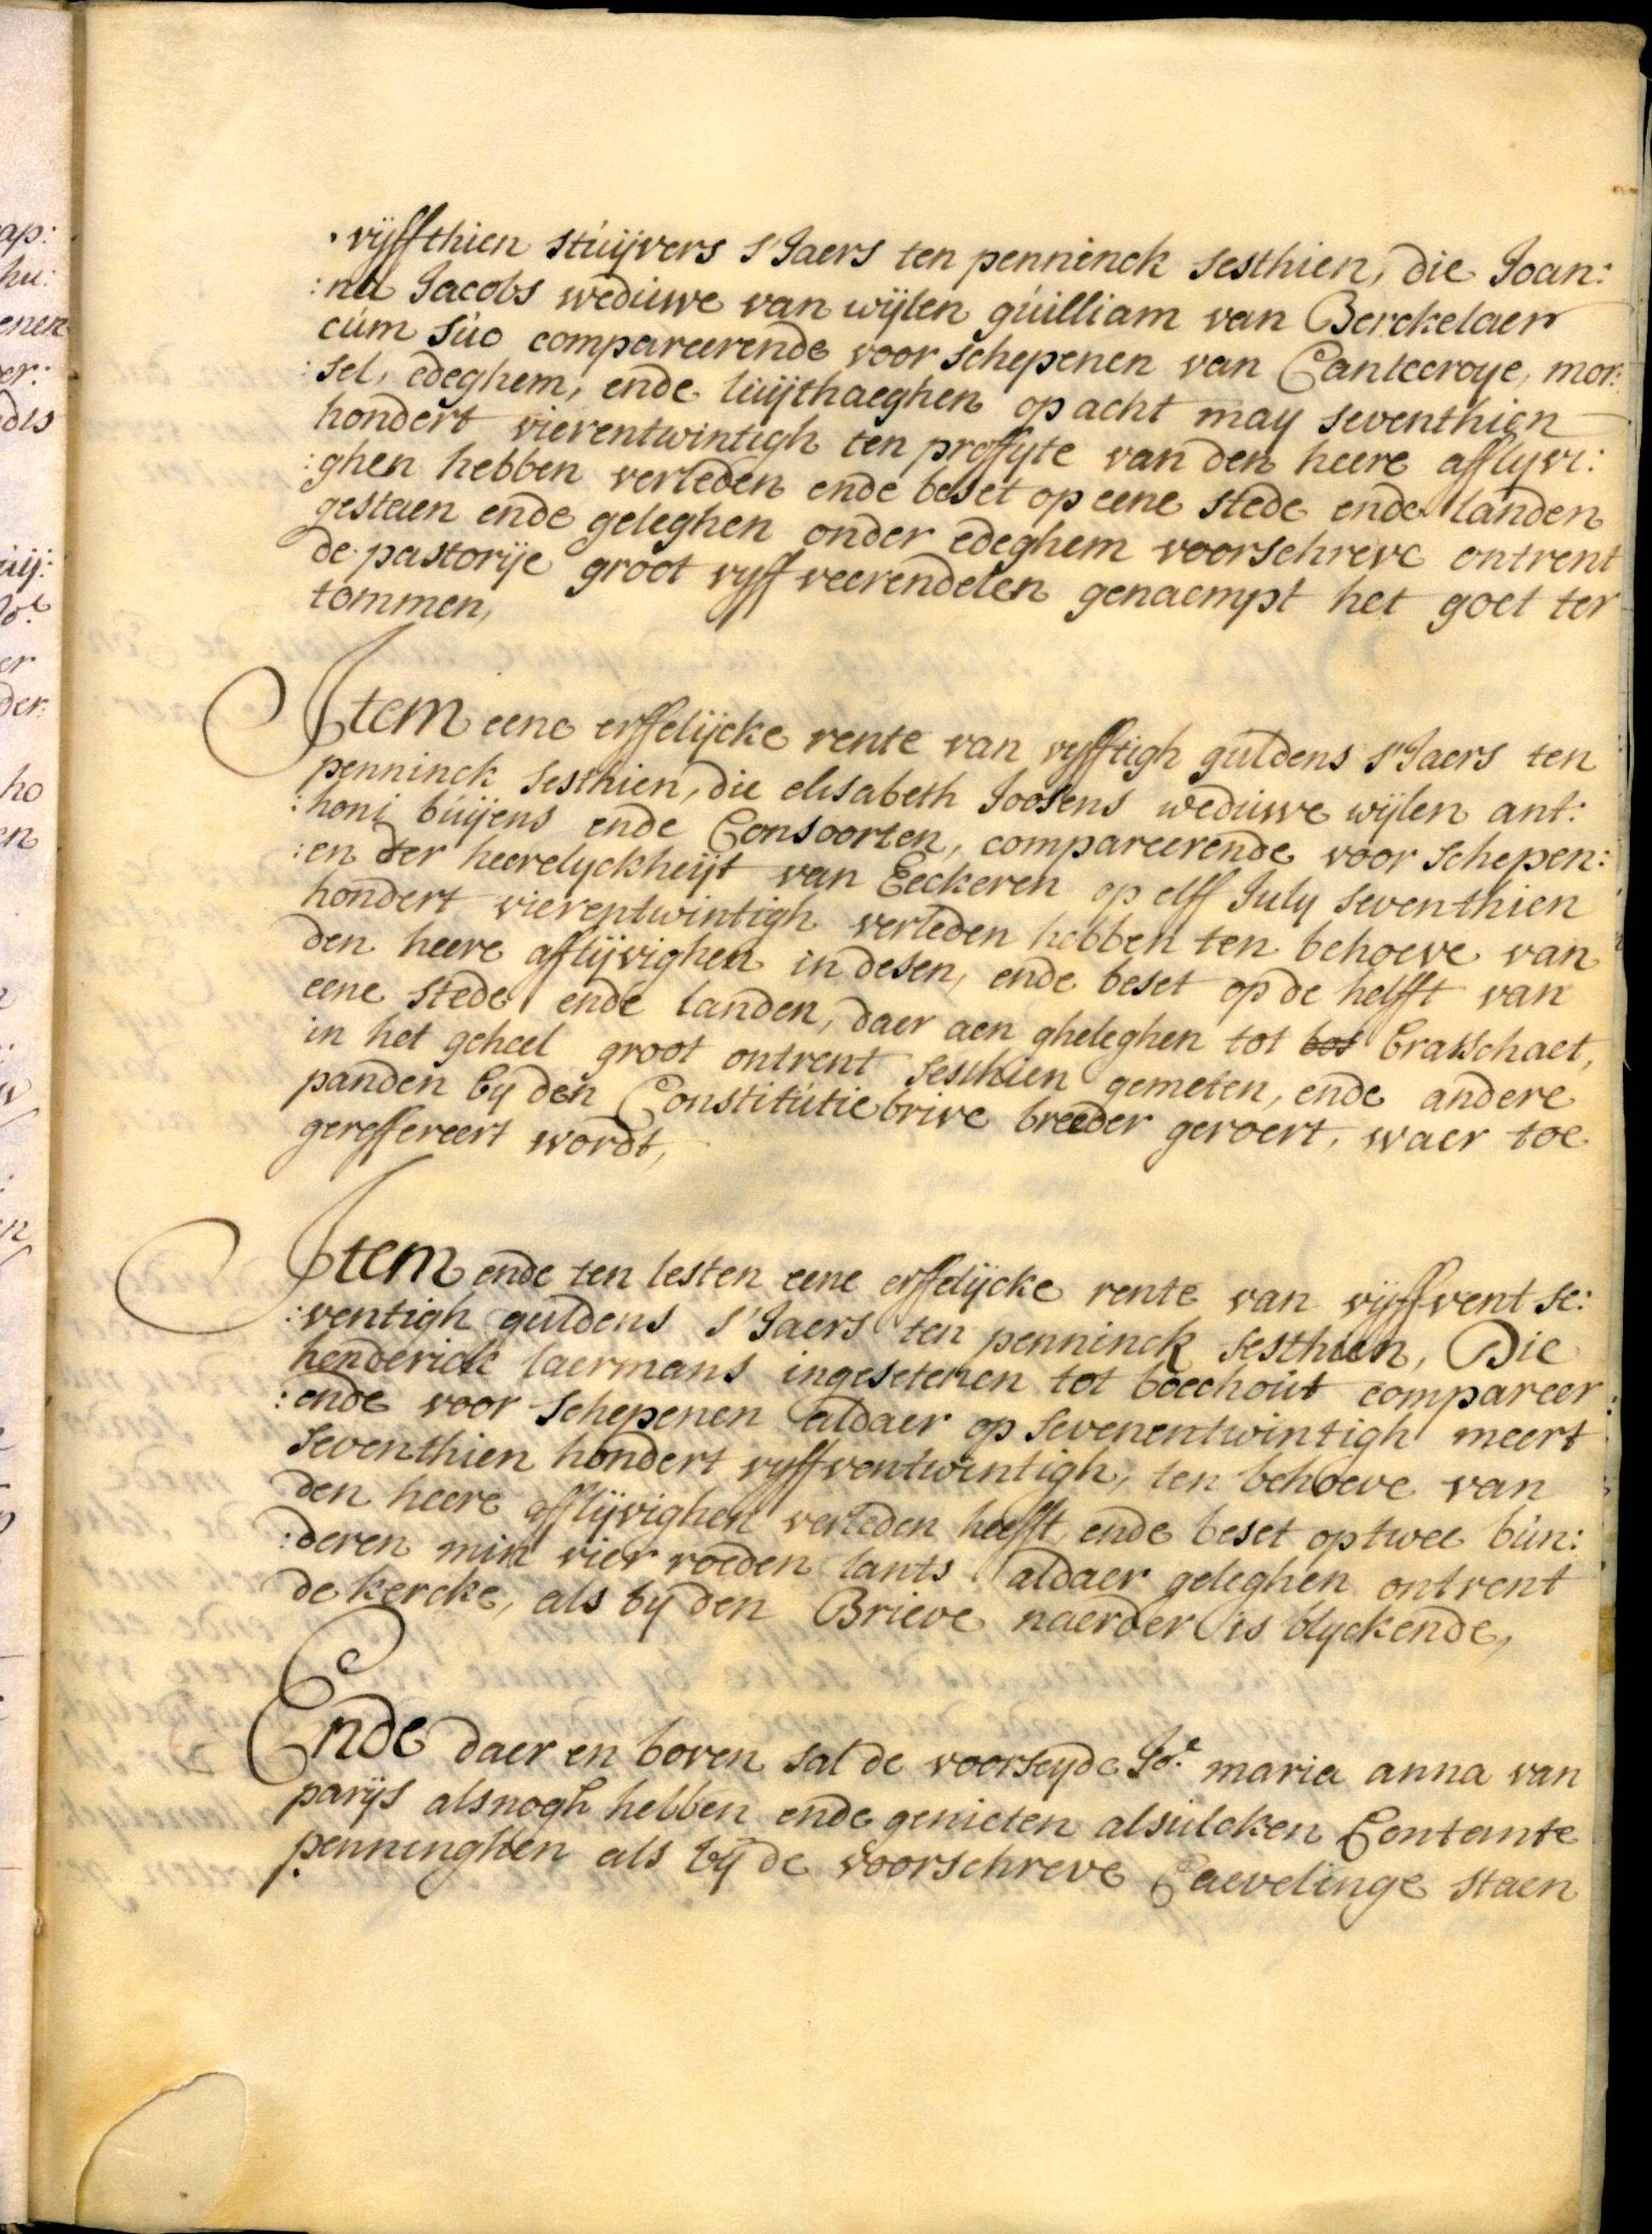 vijffthien stuijvers s'Jaers ten penninck sesthien, die Joan:
:na Jacobs weduwe van wijlen guilliam van Berckelaer
cum suo compareerende voor schepenen van Cantecroye, mor:
:sel, edeghem, ende luijthaeghen op acht may seventhien
hondert vierentwintigh ten proffyte van den heere afflyvi:
:ghen hebben verleden ende beset op eene stede ende landen
gestaen ende geleghen onder edeghem voorschreve ontrent
de pastorije groot vyff veerendelen genaempt het goet ter
tommen,
Item eene erffelijcke rente van vyfftigh guldens s'Jaers ten
penninck sesthien, die elisabeth Joosens weduwe wijlen ant:
:honi buijens ende Consoorten, compareerende voor schepen:
:en der heerelyckheijt van Eeckeren op elff July seventhien
hondert vierentwintigh verleden hebben ten behoeve van
den heere afflijvighen in desen, ende beset op de helfft van
eene stede ende landen, daer aen gheleghen tot bos brasschaet,
in het geheel groot ontrent sesthien gemeten, ende andere
panden by den Constitutie brive breeder geroert, waer toe
gereffereert wordt,
Item ende ten lesten eene erffelijcke rente van vijffvent se:
:ventigh guldens s'Jaers ten penninck sesthien, Die
henderick laermans ingesetenen tot boechout compareer:
:ende voor schepenen aldaer op sevenentwintigh meert
seventhien hondert vyffventwintigh, ten behoeve van
den heere afflijvighen verleden heefft, ende beset op twee bun:
:deren min vier roeden lants aldaer geleghen ontrent
de kercke, als by den Brieve naerder is blyckende,
Ende daer en boven sal de voorseyde Jo.e maria anna van
parijs alsnogh hebben ende genieten alsulcken Contante
penninghen als bij de voorschreve Caevelinge staen